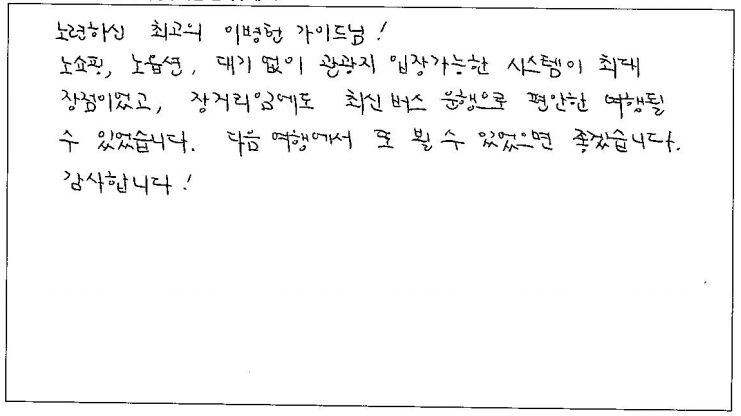 노련하신 최고의 이병헌 가이드님!
노쇼핑, 노옵션, 대기 없이 관광지 입장가능한 시스템이 최대
장점이었고, 장거리임에도 최신 버스 운행으로 편안한 여행될
수 있었습니다. 다음 여행에서 또 뵐 수 있었으면 좋겠습니다.
감사합니다!